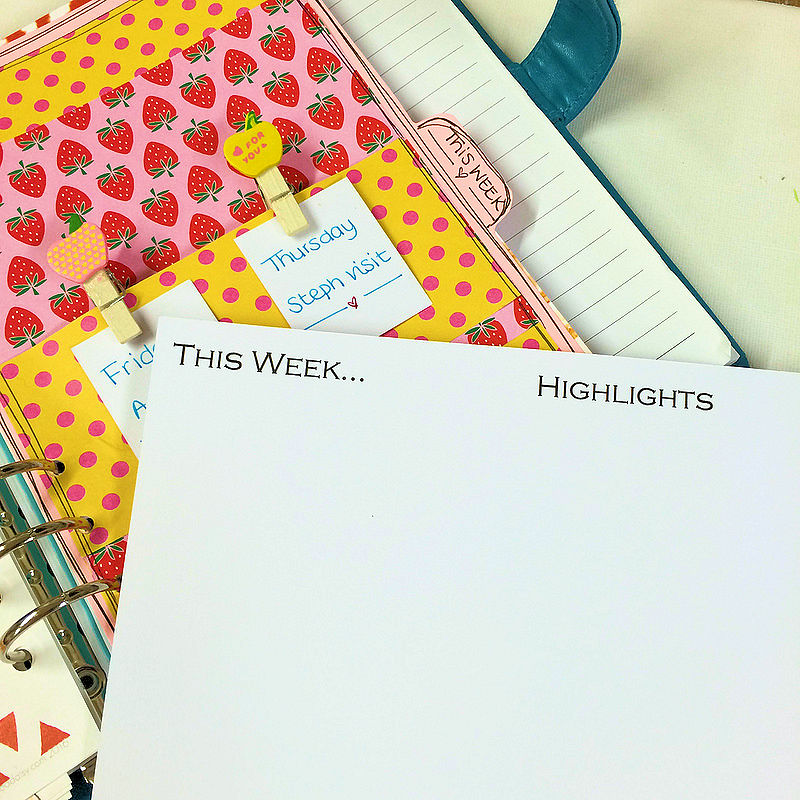 This WEEK
FOR
YOU
Thursday
Steph visit
THIS WEEK...
HIGHLIGHTS